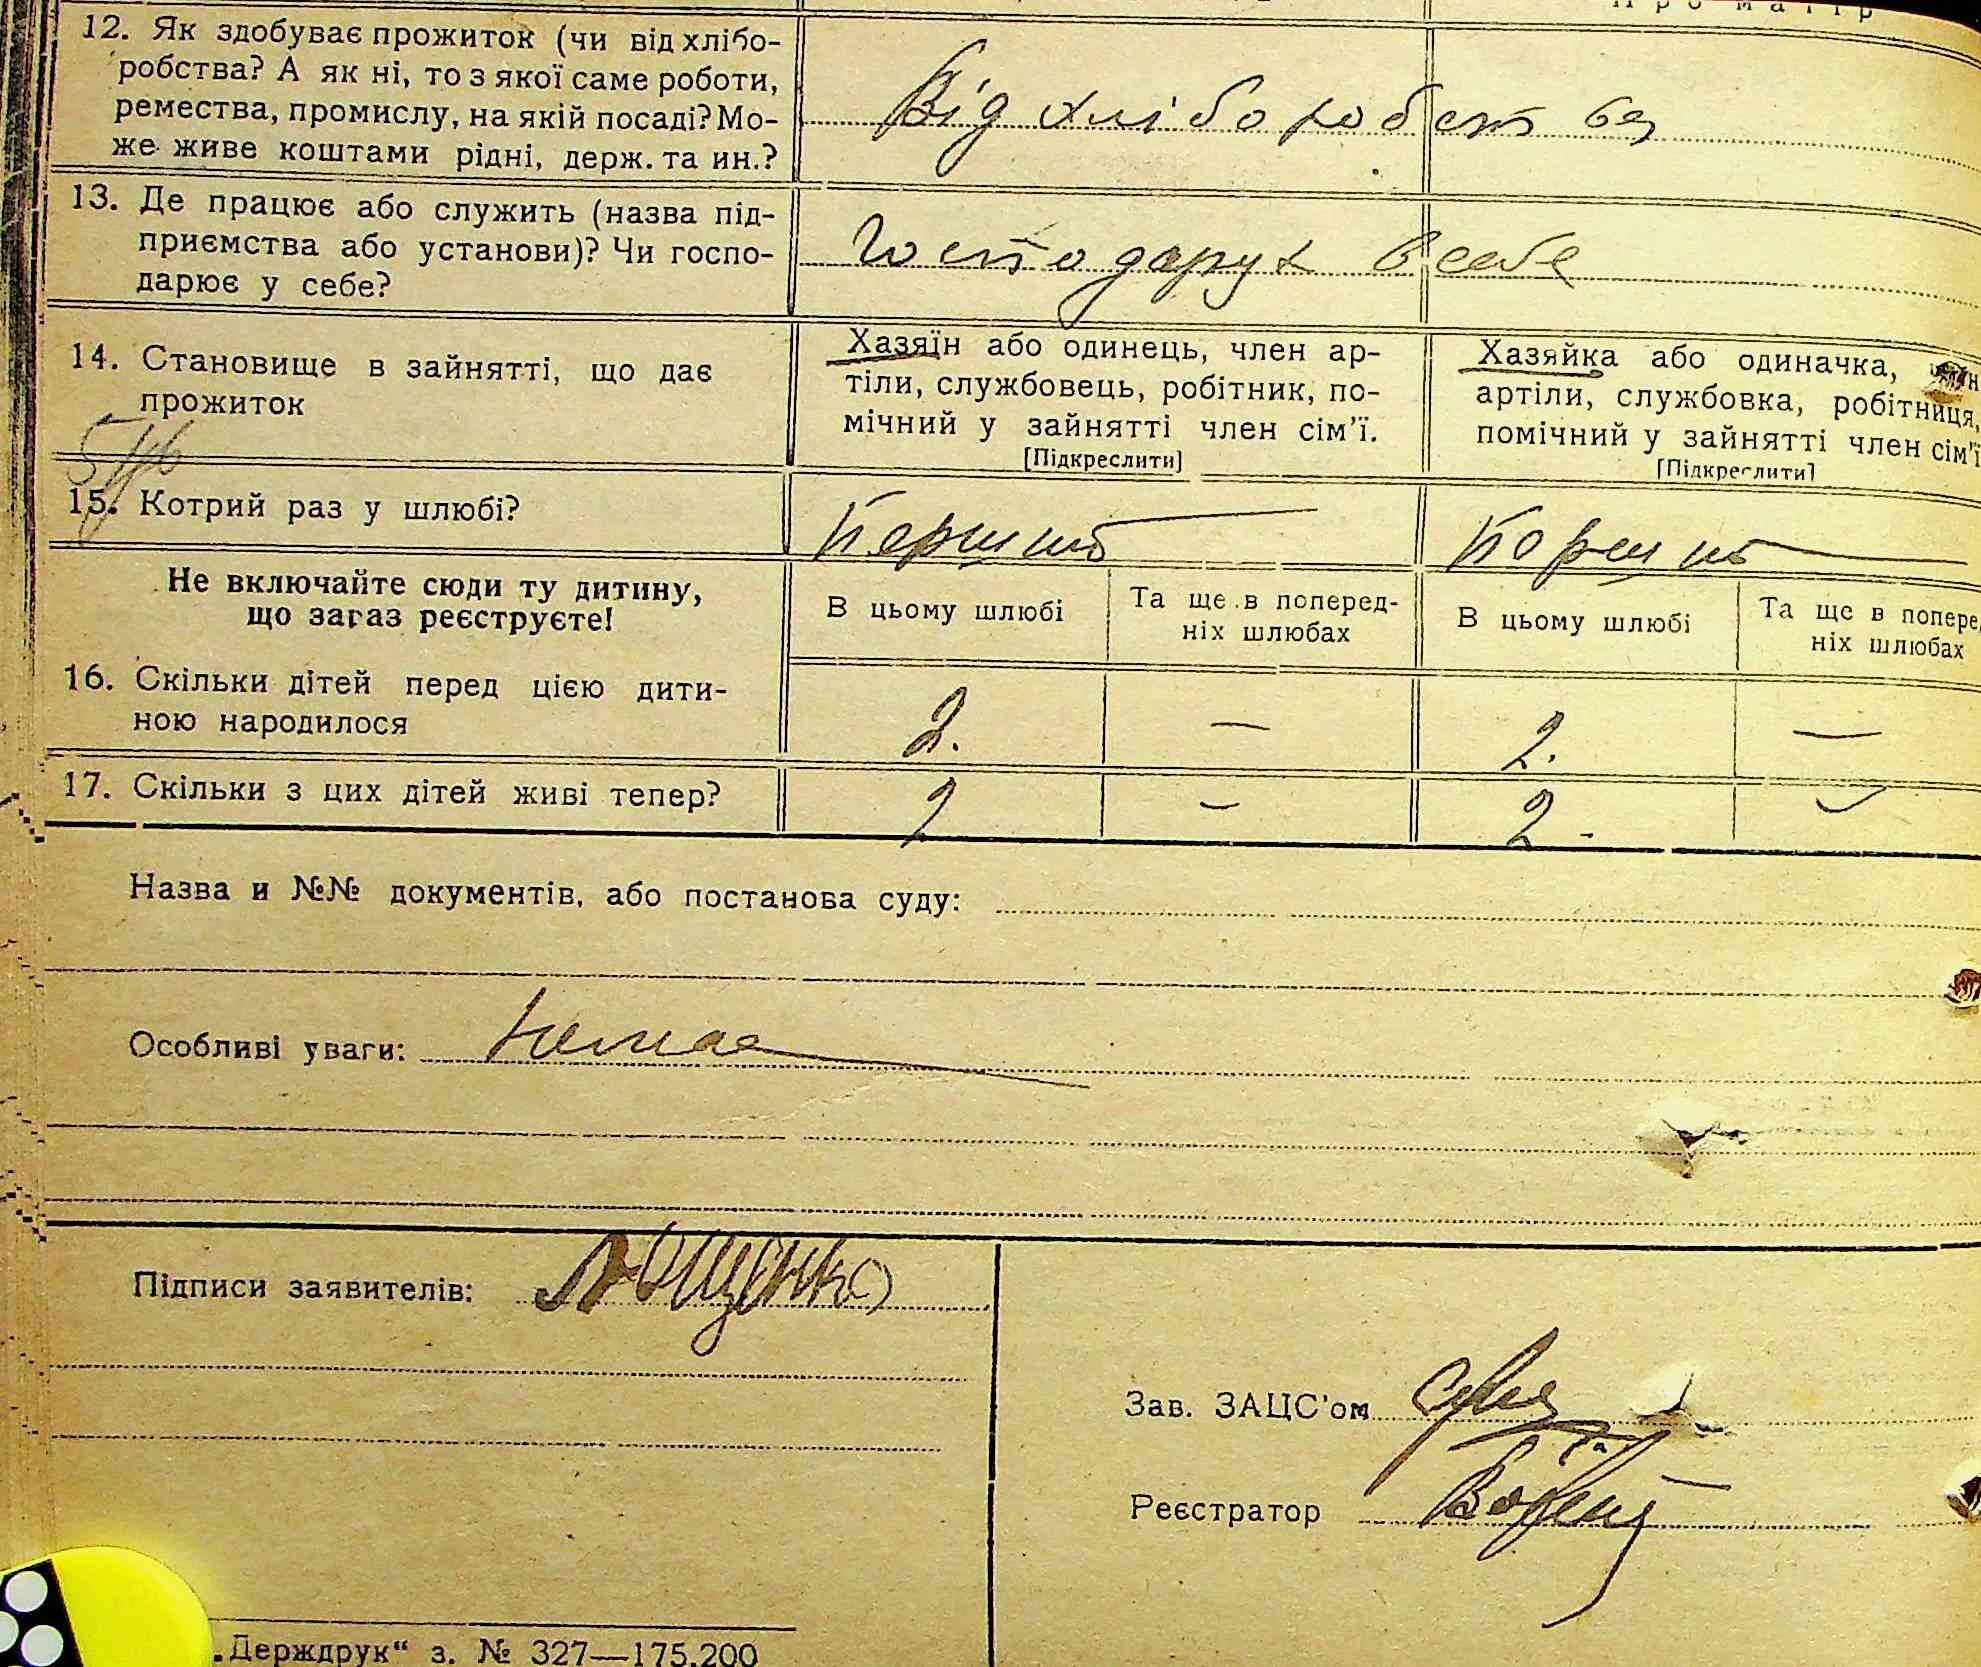 Про матір
12. Як здобуває прожиток (чи від хлібо-
робства? А як ні, то з якої саме роботи,
ремества, промислу, на якій посаді? Мо-
же живе коштами рідні, держ. та ин.?
Від хліборобства
13. Де працює або служить (назва під-
приємства або установи)? Чи госпо-
дарює у себе?
Господарує в себе
14. Становище в зайнятті, що дає
прожиток
Хазяїн або одинець, член ар-
тіли, службовець, робітник, по-
мічний у зайнятті член сім'ї.
[Підкреслити]
Хазяйка або одиначка, член
артіли, службовка, робітниця,
помічний у зайнятті член сім'ї
[Підкреслити]
15. Котрий раз у шлюбі?
Перший
Перший
Не включайте сюди ту дитину,
що зараз реєструєте!
В цьому шлюбі
Та ще в поперед-
ніх шлюбах
В цьому шлюбі
Та ще в попере
ніх шлюбах
16. Скільки дітей перед цією дити-
ною народилося
2. — 2. —
17. Скільки з цих дітей живі тепер?
2 - 2 -
Назва и №№ документів, або постанова суду:
Особливі уваги: Немає
Підписи заявителів: Ющенко
Зав. ЗАЦС'ом
Реєстратор
„Держдрук“ з. № 327—175.200